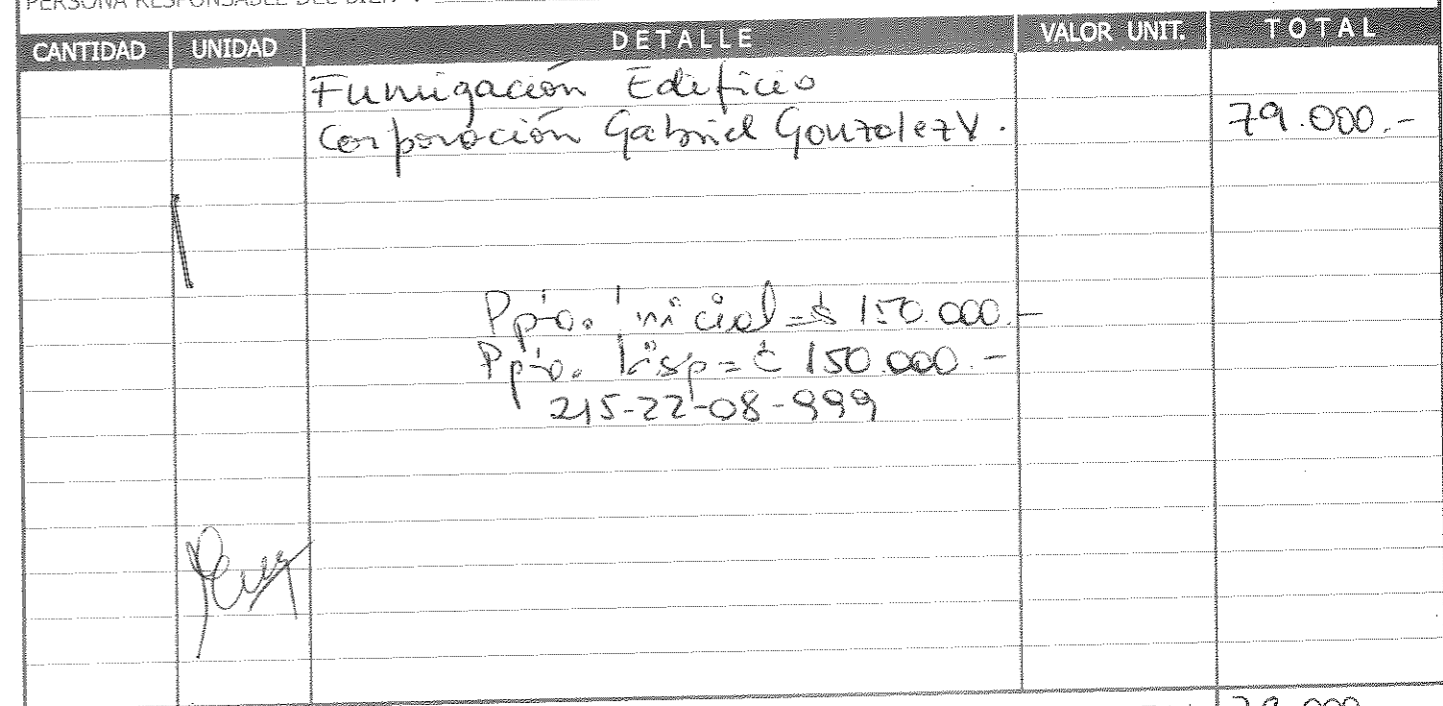 PERSONA RESPONSABLE DEL BIEN :
CANTIDAD UNIDAD DETALLE VALOR UNIT. TOTAL
Fumigación Edificio
Corporación Gabriel Gonzalez V. 79.000.-
Ppto. inicial = $ 150.000.-
Ppto. Disp = $ 150.000.-
215-22-08-999
79.000